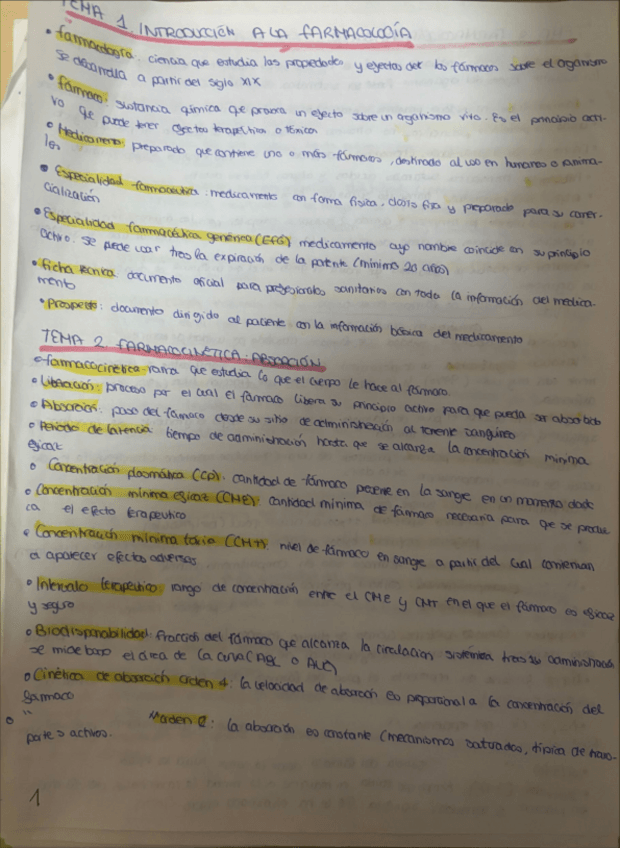 TEMA 1. INTRODUCCIÓN A LA FARMACOLOGÍA
• farmacología: ciencia que estudia las propiedades y efectos de los fármacos sobre el organismo
se desarrolla a partir del siglo XIX
• fármaco: sustancia química que provoca un efecto sobre un organismo vivo. Es el principio acti-
vo que puede tener efectos terapéuticos o tóxicos
• Medicamento: preparado que contiene uno o más fármacos, destinado al uso en humanos o anima-
les
• Especialidad farmaceutica: medicamento con forma física, dosis fija y preparado para su comer-
cialización
• Especialidad farmacéutica genérica (EFG) medicamento cuyo nombre coincide en su principio
activo. Se puede usar tras la expiración de la patente (mínimo 20 años)
• ficha técnica: documento oficial para profesionales sanitarios con toda la información del medica-
mento
• Prospecto: documento dirigido al paciente con la información básica del medicamento
TEMA 2 FARMACOCINÉTICA: ABSORCIÓN
• farmacocinética: rama que estudia lo que el cuerpo le hace al fármaco
• Liberación: proceso por el cual el fármaco libera su principio activo para que pueda ser absorbido
• Absorción: paso del fármaco desde su sitio de administración al torrente sanguíneo
• Periodo de latencia: tiempo de administración hasta que se alcanza la concentración mínima
eficaz
• Concentración plasmática (CP): cantidad de fármaco presente en la sangre en un momento dado
• Concentración mínima eficaz (CME): cantidad mínima de fármaco necesaria para que se produz
ca el efecto terapéutico
• Concentración mínima tóxica (CMT): nivel de fármaco en sangre a partir del cual comienzan
a aparecer efectos adversos
• Intervalo terapéutico: rango de concentración entre el CME y CMT en el que el fármaco es eficaz
y seguro
• Biodisponibilidad: fracción del fármaco que alcanza la circulación sistémica tras su administración
se mide bajo el área de la curva (ABC o AUC)
• Cinética de absorción orden 1: la velocidad de absorción es proporcional a la concentración del
fármaco
• " orden 0: la absorción es constante (mecanismos saturados, típica de trans-
portes activos.
1